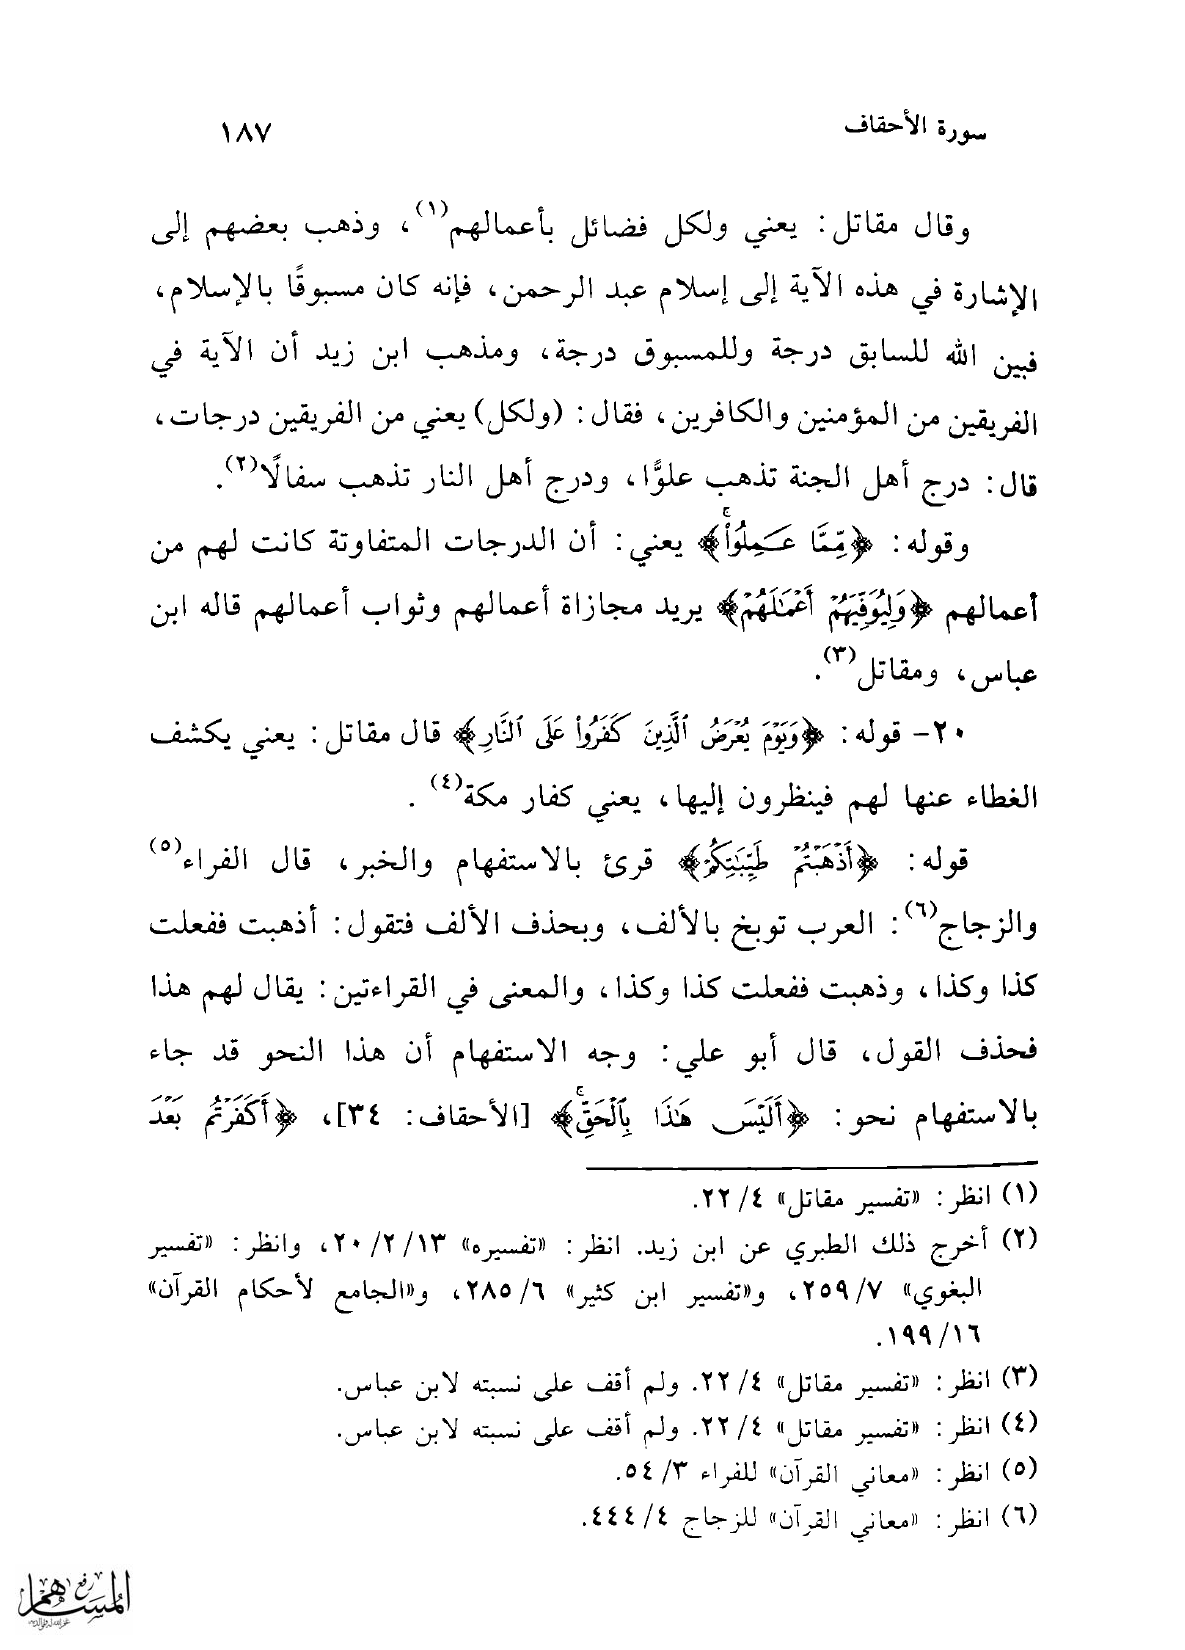 سورة الأحقاف ١٨٧
وقال مقاتل: يعني ولكل فضائل بأعمالهم(١)، وذهب بعضهم إلى
الإشارة في هذه الآية إلى إسلام عبد الرحمن، فإنه كان مسبوقًا بالإسلام،
فبين الله للسابق درجة وللمسبوق درجة، ومذهب ابن زيد أن الآية في
الفريقين من المؤمنين والكافرين، فقال: (ولكل) يعني من الفريقين درجات،
قال: درج أهل الجنة تذهب علوًّا، ودرج أهل النار تذهب سفالًا(٢).
وقوله: ﴿مِّمَّا عَمِلُواْۚ﴾ يعني: أن الدرجات المتفاوتة كانت لهم من
أعمالهم ﴿وَلِيُوَفِّيَهُمۡ أَعۡمَٰلَهُمۡ﴾ يريد مجازاة أعمالهم وثواب أعمالهم قاله ابن
عباس، ومقاتل(٣).
٢٠- قوله: ﴿وَيَوۡمَ يُعۡرَضُ ٱلَّذِينَ كَفَرُواْ عَلَى ٱلنَّارِ﴾ قال مقاتل: يعني يكشف
الغطاء عنها لهم فينظرون إليها، يعني كفار مكة(٤) .
قوله: ﴿أَذۡهَبۡتُمۡ طَيِّبَٰتِكُمۡ﴾ قرئ بالاستفهام والخبر، قال الفراء(٥)
والزجاج(٦): العرب توبخ بالألف، وبحذف الألف فتقول: أذهبت ففعلت
كذا وكذا، وذهبت ففعلت كذا وكذا، والمعنى في القراءتين: يقال لهم هذا
فحذف القول، قال أبو علي: وجه الاستفهام أن هذا النحو قد جاء
بالاستفهام نحو: ﴿أَلَيۡسَ هَٰذَا بِٱلۡحَقِّۚ﴾ [الأحقاف: ٣٤]، ﴿أَكَفَرۡتُم بَعۡدَ
(١) انظر: «تفسير مقاتل» ٤/ ٢٢.
(٢) أخرج ذلك الطبري عن ابن زيد. انظر: «تفسيره» ١٣/ ٢/ ٢٠، وانظر: «تفسير
البغوي» ٧/ ٢٥٩، و«تفسير ابن كثير» ٦/ ٢٨٥، و«الجامع لأحكام القرآن»
١٦/ ١٩٩.
(٣) انظر: «تفسير مقاتل» ٤/ ٢٢. ولم أقف على نسبته لابن عباس.
(٤) انظر: «تفسير مقاتل» ٤/ ٢٢. ولم أقف على نسبته لابن عباس.
(٥) انظر: «معاني القرآن» للفراء ٣/ ٥٤.
(٦) انظر: «معاني القرآن» للزجاج ٤/ ٤٤٤.
رفع
المساهم